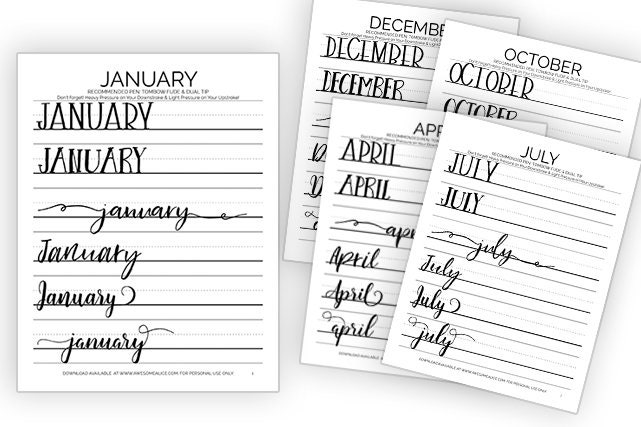 JANUARY
RECOMMENDED PEN: TOMBOW FUDE & DUAL TIP
Don't Forget! Heavy Pressure on Your Downstroke & Light Pressure on Your Upstroke!
JANUARY
JANUARY
january
January
January
january
DOWNLOAD AVAILABLE AT WWW.AWESOMEALICE.COM FOR PERSONAL USE ONLY
1
DECEMBER
RECOMMENDED PEN: TOMBOW FUDE &
Don't Forget! Heavy Pressure on Your Downstroke & Light
DECEMBER
DECEMBER
OCTOBER
RECOMMENDED PEN: TOMBOW FUDE & DUAL TIP
Don't Forget! Heavy Pressure on Your Downstroke & Light Pressure on Your Upstroke!
OCTOBER
OCTOBER
APR
RECOMMENDED PEN: TOM
Don't Forget! Heavy Pressure on Your Down
APRIL
APRIL
apr
April
April
april
DOWNLOAD AVAILABLE
JULY
RECOMMENDED PEN: TOMBOW FUDE & DUAL TIP
Don't Forget! Heavy Pressure on Your Downstroke & Light Pressure on Your Upstroke!
JULY
JULY
july
July
July
july
DOWNLOAD AVAILABLE AT WWW.AWESOMEALICE.COM FOR PERSONAL USE ONLY